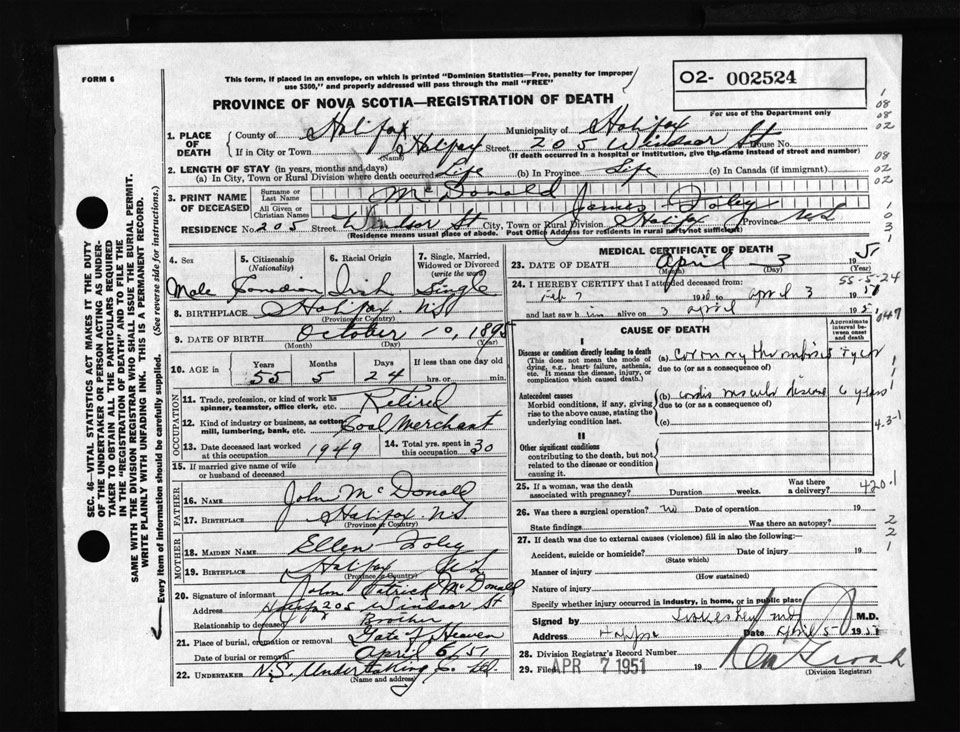 FORM 6
This form, if placed in an envelope, on which is printed "Dominion Statistics—Free, penalty for improper
use $300," and properly addressed will pass through the mail "FREE"
O2- 002524
For use of the Department only
PROVINCE OF NOVA SCOTIA—REGISTRATION OF DEATH
1. PLACE OF DEATH County of Halifax Municipality of Halifax
If in City or Town Halifax Street 205 Windsor St House No.
(Name) (If death occurred in a hospital or institution, give the name instead of street and number)
2. LENGTH OF STAY (in years, months and days)
(a) In City, Town or Rural Division where death occurred Life (b) In Province Life (c) In Canada (if immigrant)
3. PRINT NAME OF DECEASED Surname or Last Name McDonald
All Given or Christian Names James Foley
RESIDENCE No. 205 Street Windsor St City, Town or Rural Division Halifax Province NS
(Residence means usual place of abode. Post Office Address for residents in rural parts not sufficient)
4. Sex Male
5. Citizenship (Nationality) Canadian
6. Racial Origin Irish
7. Single, Married, Widowed or Divorced (write the word) Single
8. BIRTHPLACE Halifax NS
(Province or Country)
9. DATE OF BIRTH October 10, 1895
(Month) (Day) (Year)
10. AGE in Years 55 Months 5 Days 24 If less than one day old hrs. or min.
OCCUPATION
11. Trade, profession, or kind of work as spinner, teamster, office clerk, etc. Retired
12. Kind of industry or business, as cotton mill, lumbering, bank, etc. Coal Merchant
13. Date deceased last worked at this occupation 1949
14. Total yrs. spent in this occupation 30
15. If married give name of wife or husband of deceased
FATHER
16. NAME John McDonald
17. BIRTHPLACE Halifax N.S.
(Province or Country)
MOTHER
18. MAIDEN NAME Ellen Foley
19. BIRTHPLACE Halifax N.S.
(Province or Country)
20. Signature of informant John Patrick McDonald
Address Halifax 205 Windsor St
Relationship to deceased Brother
21. Place of burial, cremation or removal Gate of Heaven
Date of burial or removal April 6/51
22. UNDERTAKER N.S. Undertaking Co. Ltd.
(Name and address)
MEDICAL CERTIFICATE OF DEATH
23. DATE OF DEATH April 3 1951
(Month) (Day) (Year)
55-5-24
24. I HEREBY CERTIFY that I attended deceased from:
Feb 7 to April 3 1951
and last saw him alive on 3 April 1951
CAUSE OF DEATH
Approximate interval between onset and death
I
Disease or condition directly leading to death
(This does not mean the mode of dying, e.g., heart failure, asthenia, etc. It means the disease, injury, or complication which caused death.)
(a) coronary thrombosis
due to (or as a consequence of)
Antecedent causes
Morbid conditions, if any, giving rise to the above cause, stating the underlying condition last.
(b) cardio vascular disease 6 years
due to (or as a consequence of)
(c)
II
Other significant conditions
contributing to the death, but not related to the disease or condition causing it.
25. If a woman, was the death associated with pregnancy? Duration weeks. Was there a delivery?
420.1
26. Was there a surgical operation? no Date of operation 19
State findings Was there an autopsy?
27. If death was due to external causes (violence) fill in also the following:—
Accident, suicide or homicide? Date of injury 19
(State which)
Manner of injury
(How sustained)
Nature of injury
Specify whether injury occurred in industry, in home, or in public place
Signed by M.D.
Address Halifax Date April 5 1951
28. Division Registrar's Record Number
29. Filed APR 7 1951 19
(Division Registrar)
SEC. 46—VITAL STATISTICS ACT MAKES IT THE DUTY
OF THE UNDERTAKER OR PERSON ACTING AS UNDER-
TAKER TO OBTAIN ALL THE PARTICULARS REQUIRED
IN THE "REGISTRATION OF DEATH" AND TO FILE THE
SAME WITH THE DIVISION REGISTRAR WHO SHALL ISSUE THE BURIAL PERMIT.
WRITE PLAINLY WITH UNFADING INK. THIS IS A PERMANENT RECORD.
Every item of information should be carefully supplied. (See reverse side for instructions.)